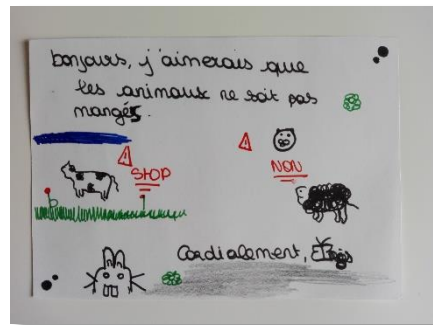 bonjours, j'aimerais que
les animaux ne soit pas
mangés.
STOP
NON
Cordialement,